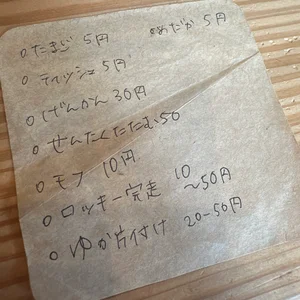 ○たまご 5円 ○めだか 5円
○ティッシュ 5円
○げんかん 30円
○せんたくたたむ50
○モフ 10円
○ロッキー完走 10~50円
○ゆか片付け 20-50円